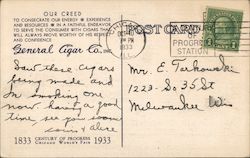 OUR CREED
TO CONSECRATE OUR ENERGY ★ EXPERIENCE
AND RESOURCES ★ IN A FAITHFUL ENDEAVOR
TO SERVE THE CONSUMER WITH CIGARS THAT
WILL ALWAYS PROVE WORTHY OF HIS RESPECT
AND CONFIDENCE
General Cigar Co., Inc.
Saw these cigars
being made and
Im smoking one
now, having a good
time see you soon
1833 CENTURY OF PROGRESS 1933
CHICAGO WORLD'S FAIR
POST CARD
PM
1933
ILL.
PROGRESS
STATION
Mr. E. Tarkowski
1223 - So 35 St
Milwaukee Wis